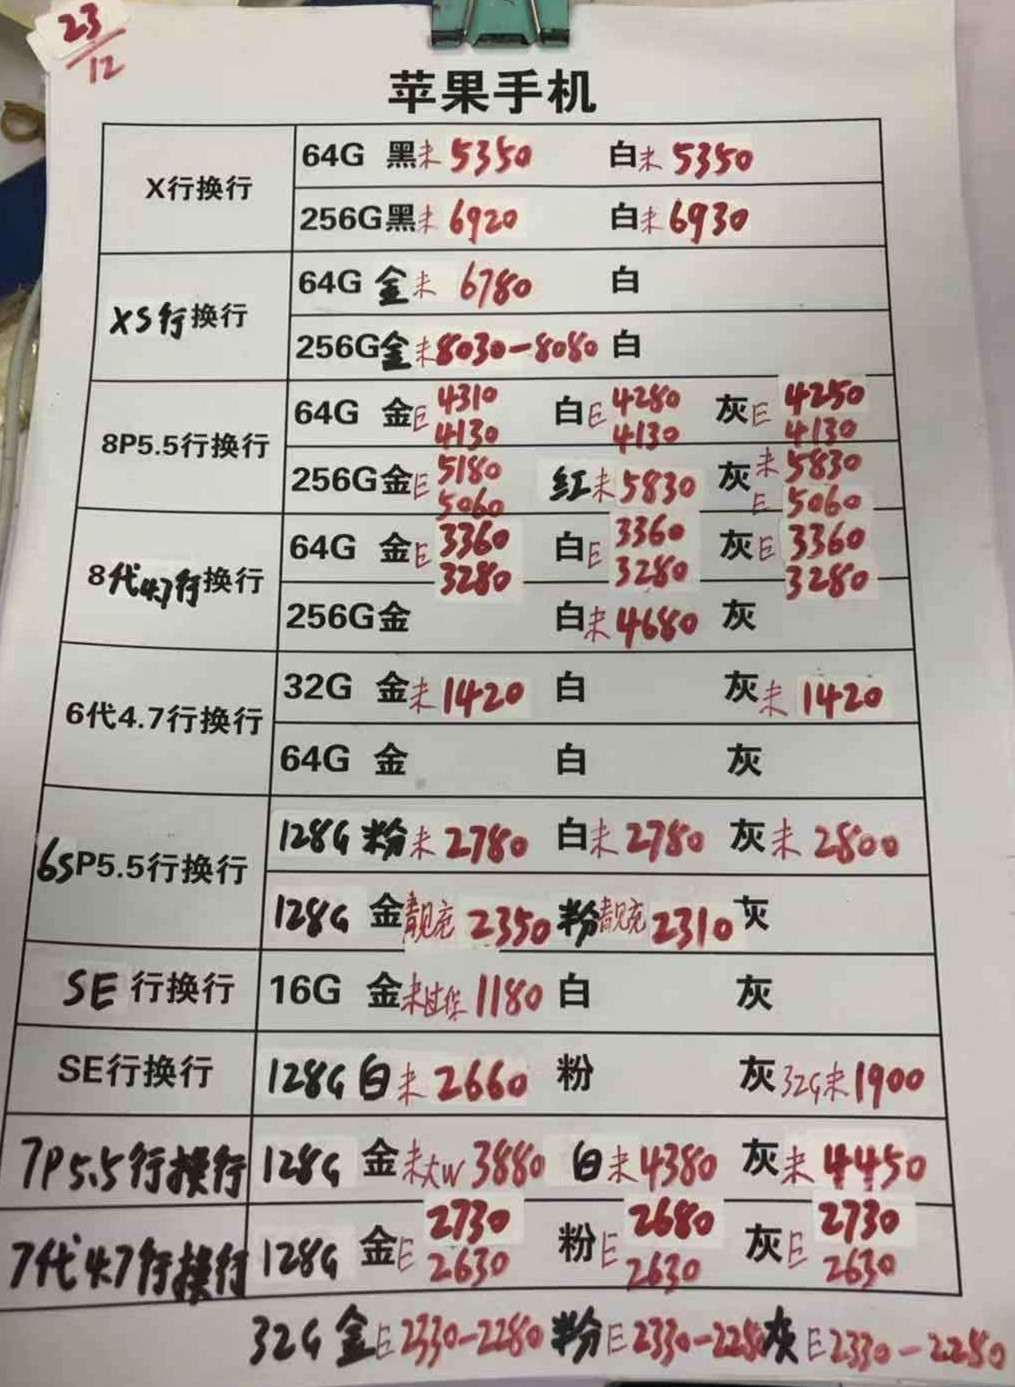 23/12
苹果手机
X行换行
64G 黑未 5350 白未 5350
256G黑未 6920 白未 6930
XS行换行
64G 金未 6780 白
256G金未8030-8080 白
8P5.5行换行
64G 金E 4310 4130 白E 4280 4130 灰E 4250 4130
256G金E 5180 5060 红未5830 灰未5830 E 5060
8代4.7行换行
64G 金E 3360 3280 白E 3360 3280 灰E 3360 3280
256G金 白未4680 灰
6代4.7行换行
32G 金未1420 白 灰未 1420
64G 金 白 灰
6SP5.5行换行
128G 粉未2780 白未2780 灰未 2800
128G 金靓充 2350 粉靓充2310 灰
SE 行换行
16G 金未过保 1180 白 灰
SE行换行
128G 白未 2660 粉 灰32G未1900
7P5.5行换行
128G 金未大W 3880 白未4380 灰未 4450
7代4.7行换行
128G 金E 2730 2630 粉E 2680 2630 灰E 2730 2630
32G 金E2330-2280 粉E2330-228 灰E2330-2280